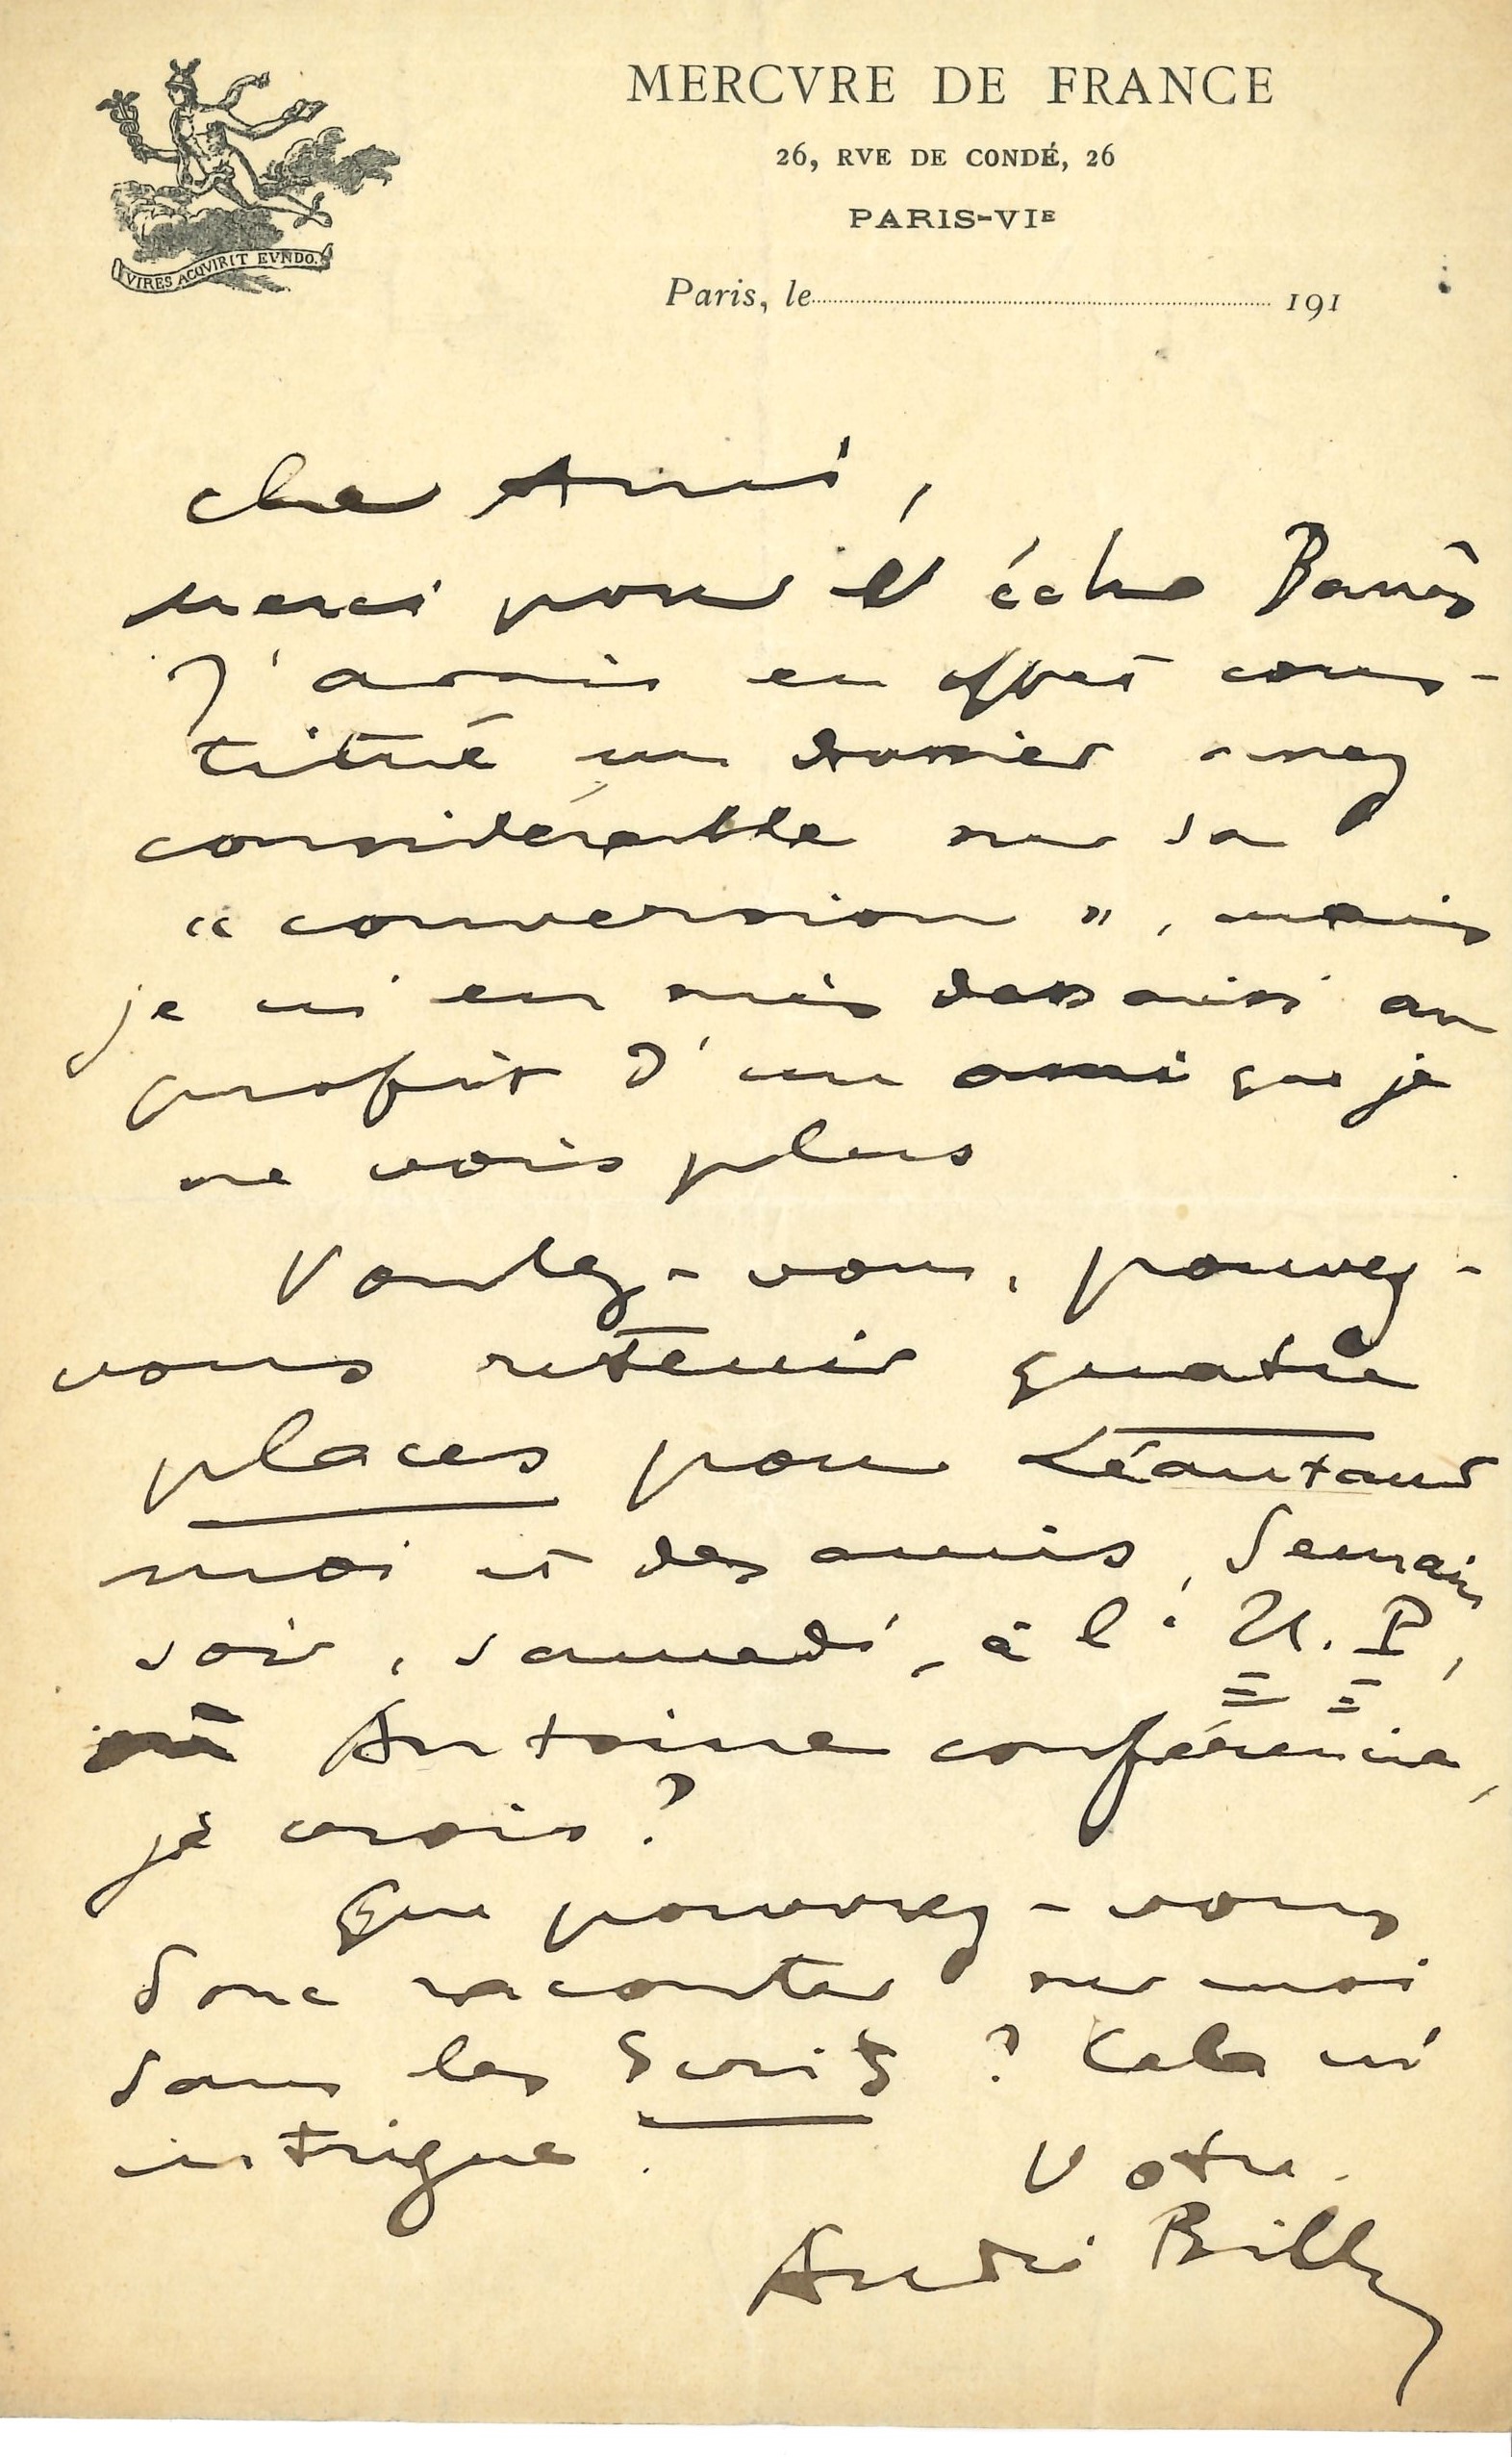 MERCVRE DE FRANCE
26, RVE DE CONDÉ, 26
PARIS-VIE
VIRES ACQVIRIT EVNDO.
Paris, le 191
cher Ami,
merci pour l'écho Barrès
J'avais en effet cons-
titué un dossier assez
considérable sur sa
"conversion", mais
je m'en suis dessaisi au
profit d'un ami que je
ne vois plus
Voulez-vous, pouvez-
vous retenir quatre
places pour Léautaud
moi et des amis, demain
soir, samedi, à l'U. P,
où Antoine conférencie,
je crois?
Que pouvez-vous
donc raconter sur moi
dans les Écrits? Cela m'
intrigue.
Votre.
André Billy